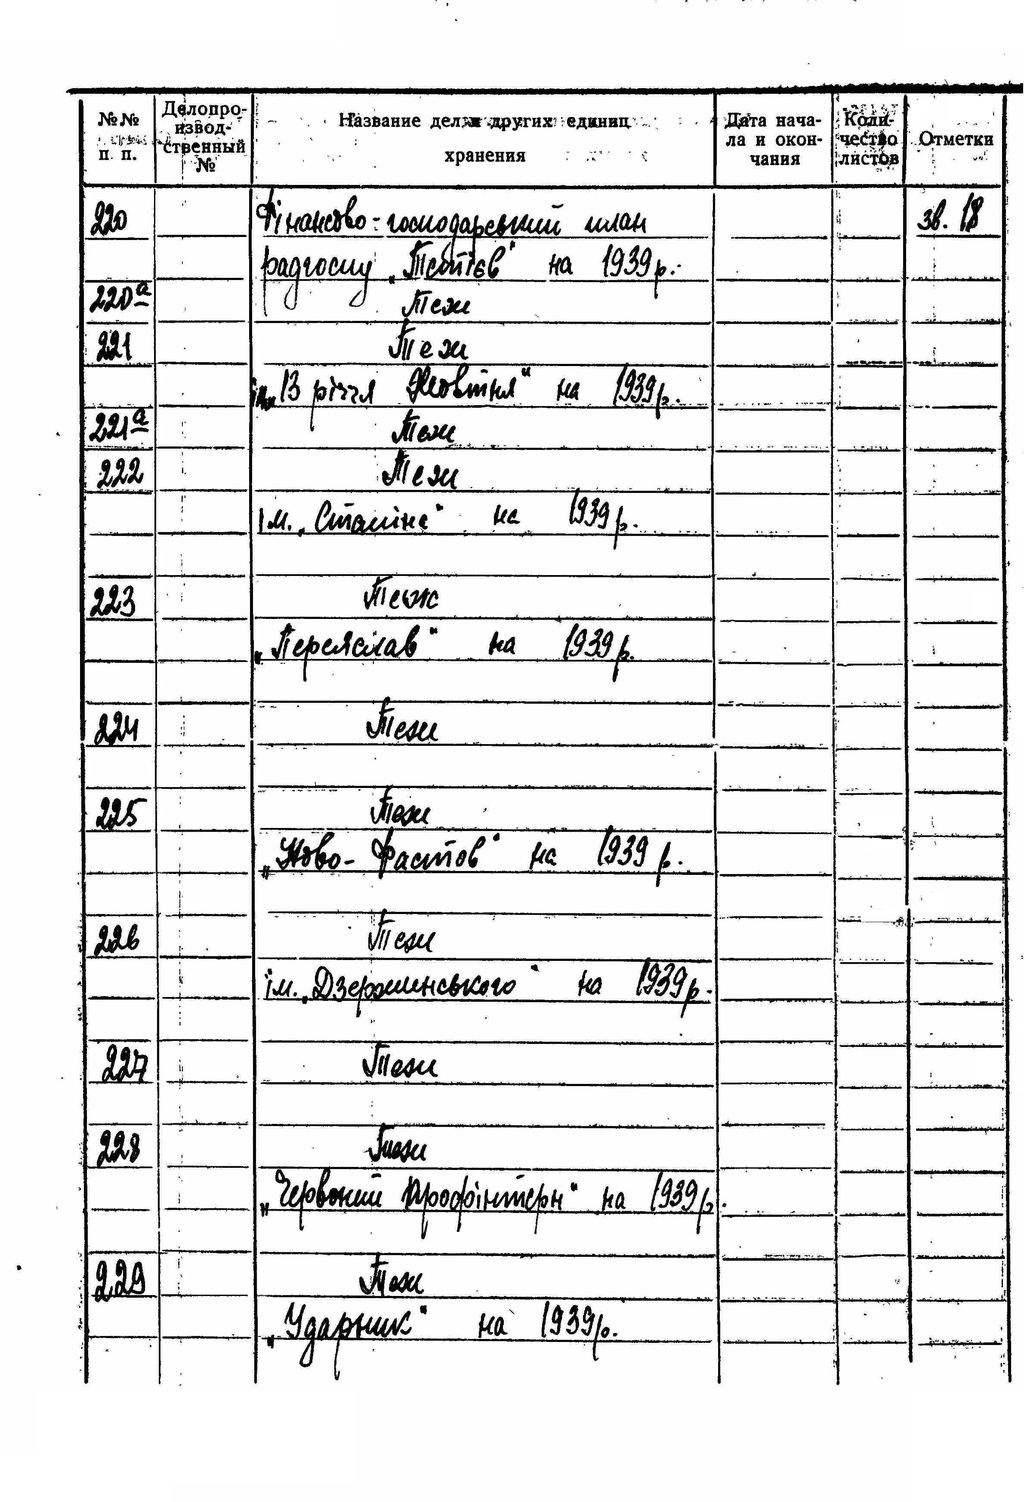 №№ п. п.
Делопро-
извод-
ственный
№
Название дел и других единиц
хранения
Дата нача-
ла и окон-
чания
Коли-
чество
листов
Отметки
220 Фінансово-господарський план зв. 18
радгоспу „Тетієв“ на 1939 р.
220а Теж
221 Теж
ім. 13 річчя Жовтня“ на 1939 р.
221а Теж
222 Теж
ім. „Сталіна“ на 1939 р.
223 Теж
„Переяслав“ на 1939 р.
224 Теж
225 Теж
„Ново-Фастов“ на 1939 р.
226 Теж
ім. „Дзержинського“ на 1939 р.
227 Теж
228 Теж
„Червоний Профінтерн“ на 1939 р.
229 Теж
„Ударник“ на 1939 р.